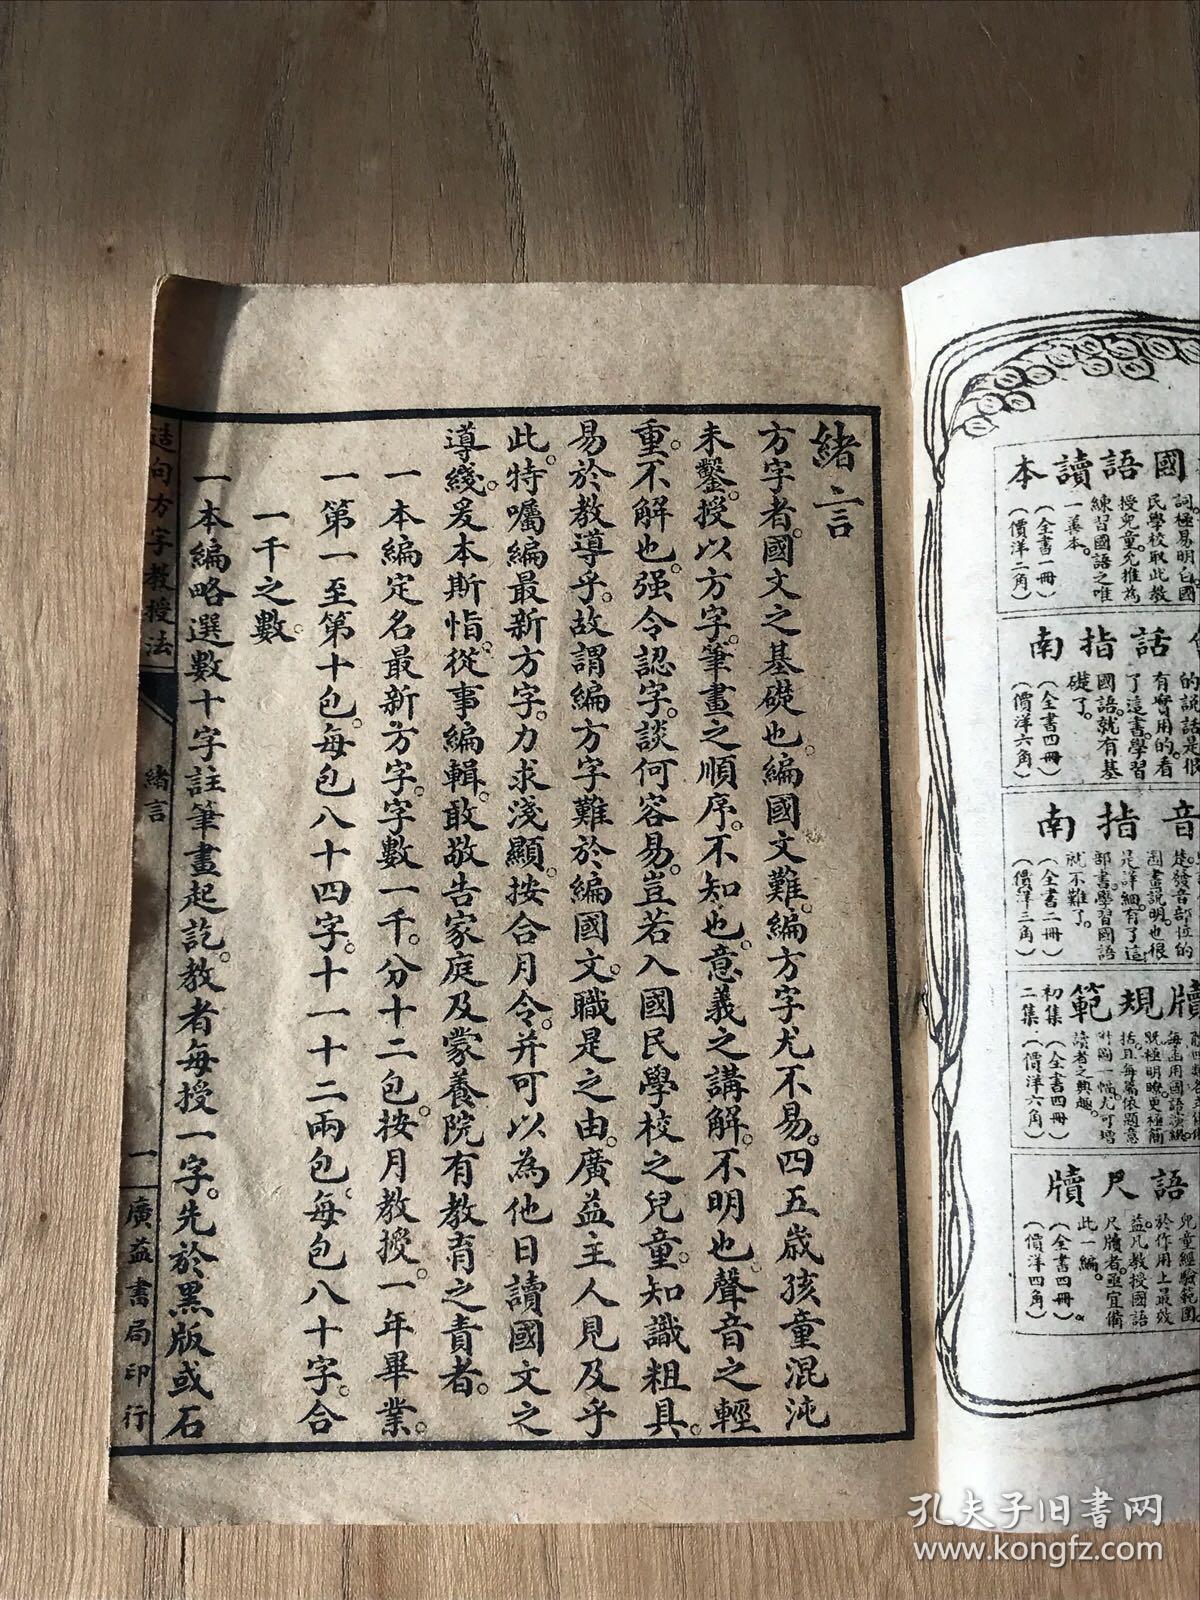 緒言
方字者。國文之基礎也。編國文難。編方字尤不易。四五歲孩童混沌
未鑿。授以方字。筆畫之順序。不知也。意義之講解。不明也。聲音之輕
重。不解也。强令認字。談何容易。豈若入國民學校之兒童。知識粗具。
易於教導乎。故謂編方字難於編國文。職是之由。廣益主人見及乎
此。特囑編最新方字。力求淺顯。按合月令。并可以為他日讀國文之
導綫。爰本斯恉。從事編輯。敢敬告家庭及蒙養院有教育之責者。
一本編定名最新方字。字數一千。分十二包。按月教授。一年畢業。
一第一至第十包。每包八十四字。十一十二兩包。每包八十字。合
一千之數。
一本編略選數十字註筆畫起訖。教者每授一字。先於黑版或石
造句方字教授法
緒言
一
廣益書局印行
國語讀本
詞。極易明白。國
民學校取此教
授兒童。允推為
練習國語之唯
一善本。
（全書一冊）
（價洋二角）
話指南
的說話是很
有實用的。看
了這書學習
國語。就有基
礎了。
（全書四冊）
（價洋六角）
音指南
楚發音部位的
圖畫說明。也很
是詳細。有了這
部書。學習國語
就不難了。
（全書二冊）
（價洋三角）
牘規範
初集
二集
每函用國語演繹
既極明瞭。更極簡
括。且每篇依題意
附圖一幅。尤可增
讀者之興趣。
（全書四冊）
（價洋六角）
語尺牘
兒童經驗範圍。
於作用上最效
益。凡教授國語
尺牘者。亟宜備
此一編。
（全書四冊）
（價洋四角）
孔夫子旧书网
www.kongfz.com